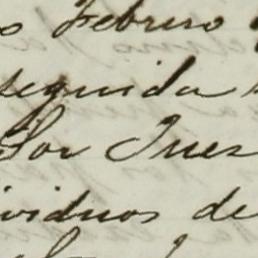 Febrero
seguida
Por Juez
ividuos de